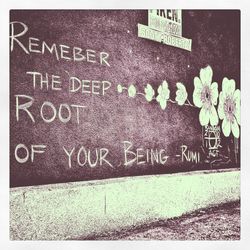 REMEBER
THE DEEP
ROOT
OF YOUR BEING -RUMI